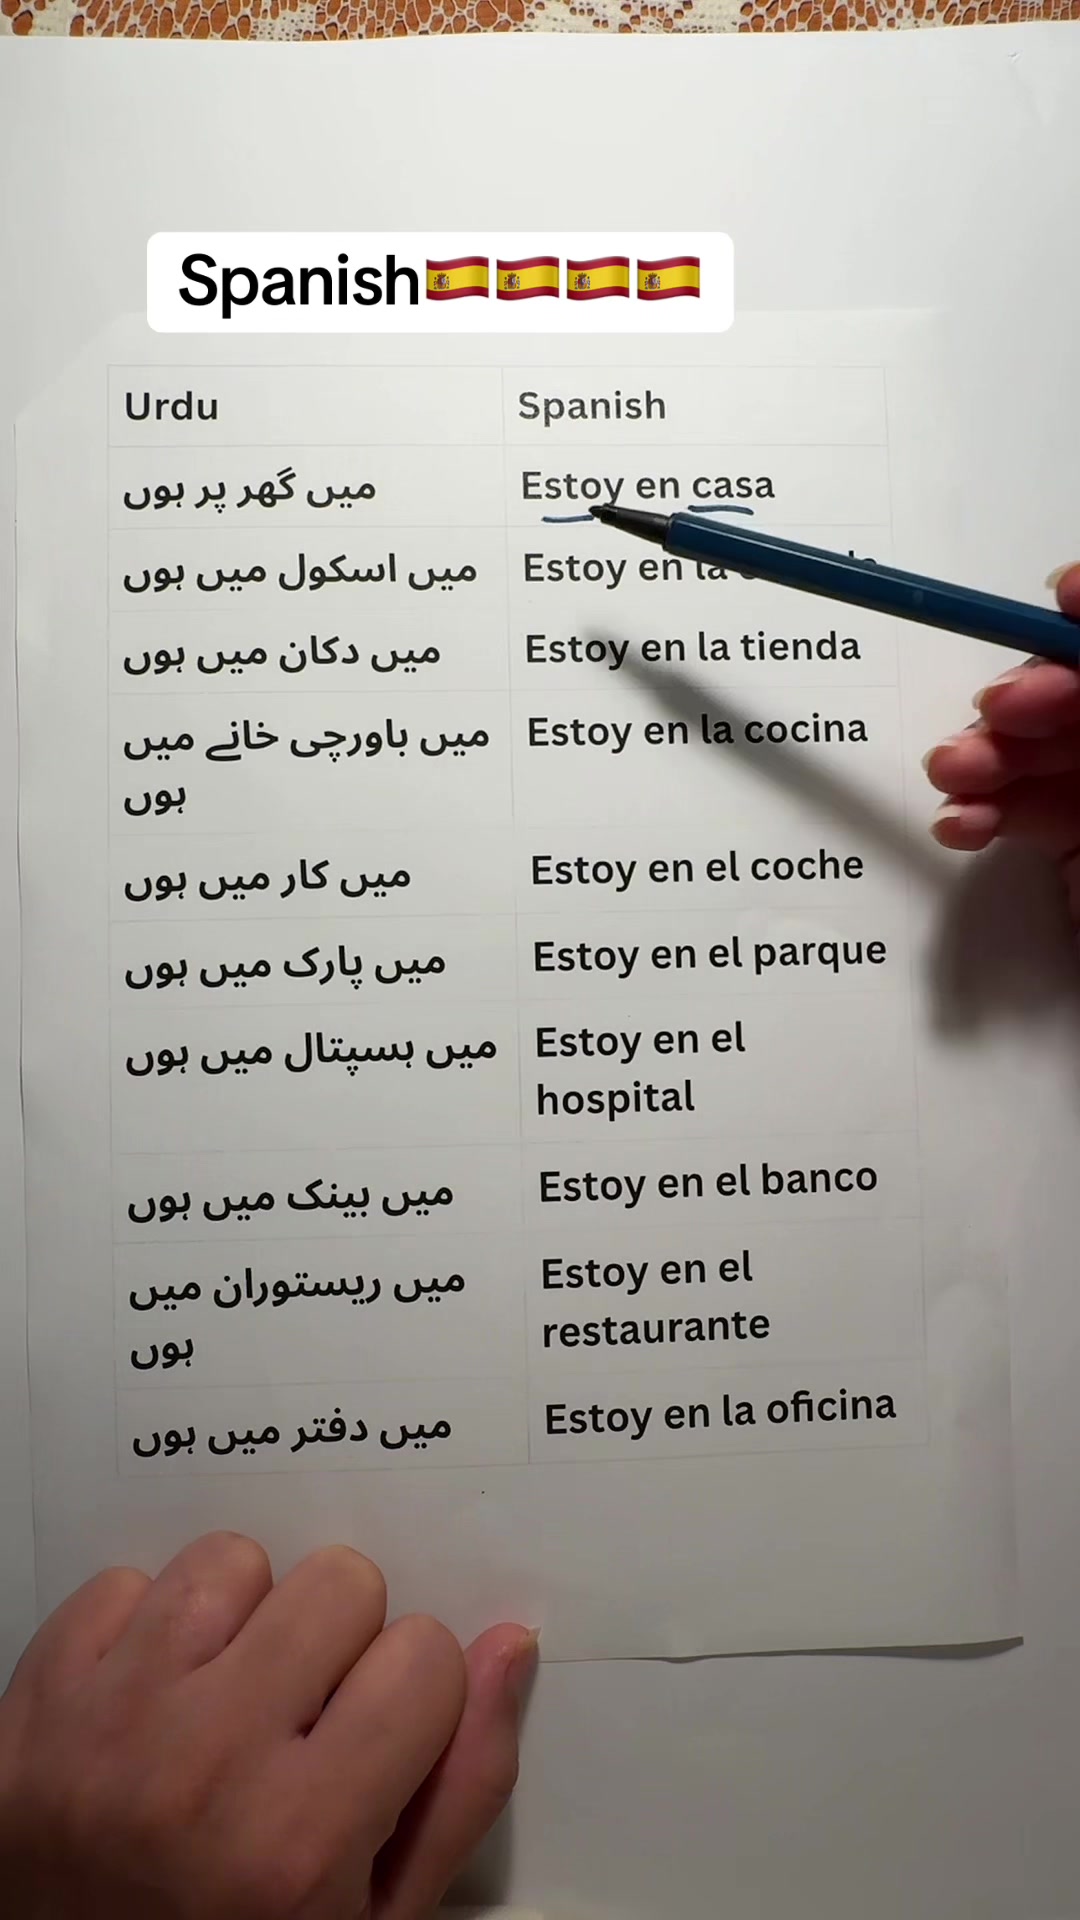 Spanish🇪🇸🇪🇸🇪🇸🇪🇸
Urdu
Spanish
میں گھر پر ہوں
Estoy en casa
میں اسکول میں ہوں
Estoy en la
میں دکان میں ہوں
Estoy en la tienda
میں باورچی خانے میں
ہوں
Estoy en la cocina
میں کار میں ہوں
Estoy en el coche
میں پارک میں ہوں
Estoy en el parque
میں ہسپتال میں ہوں
Estoy en el
hospital
میں بینک میں ہوں
Estoy en el banco
میں ریستوران میں
ہوں
Estoy en el
restaurante
میں دفتر میں ہوں
Estoy en la oficina